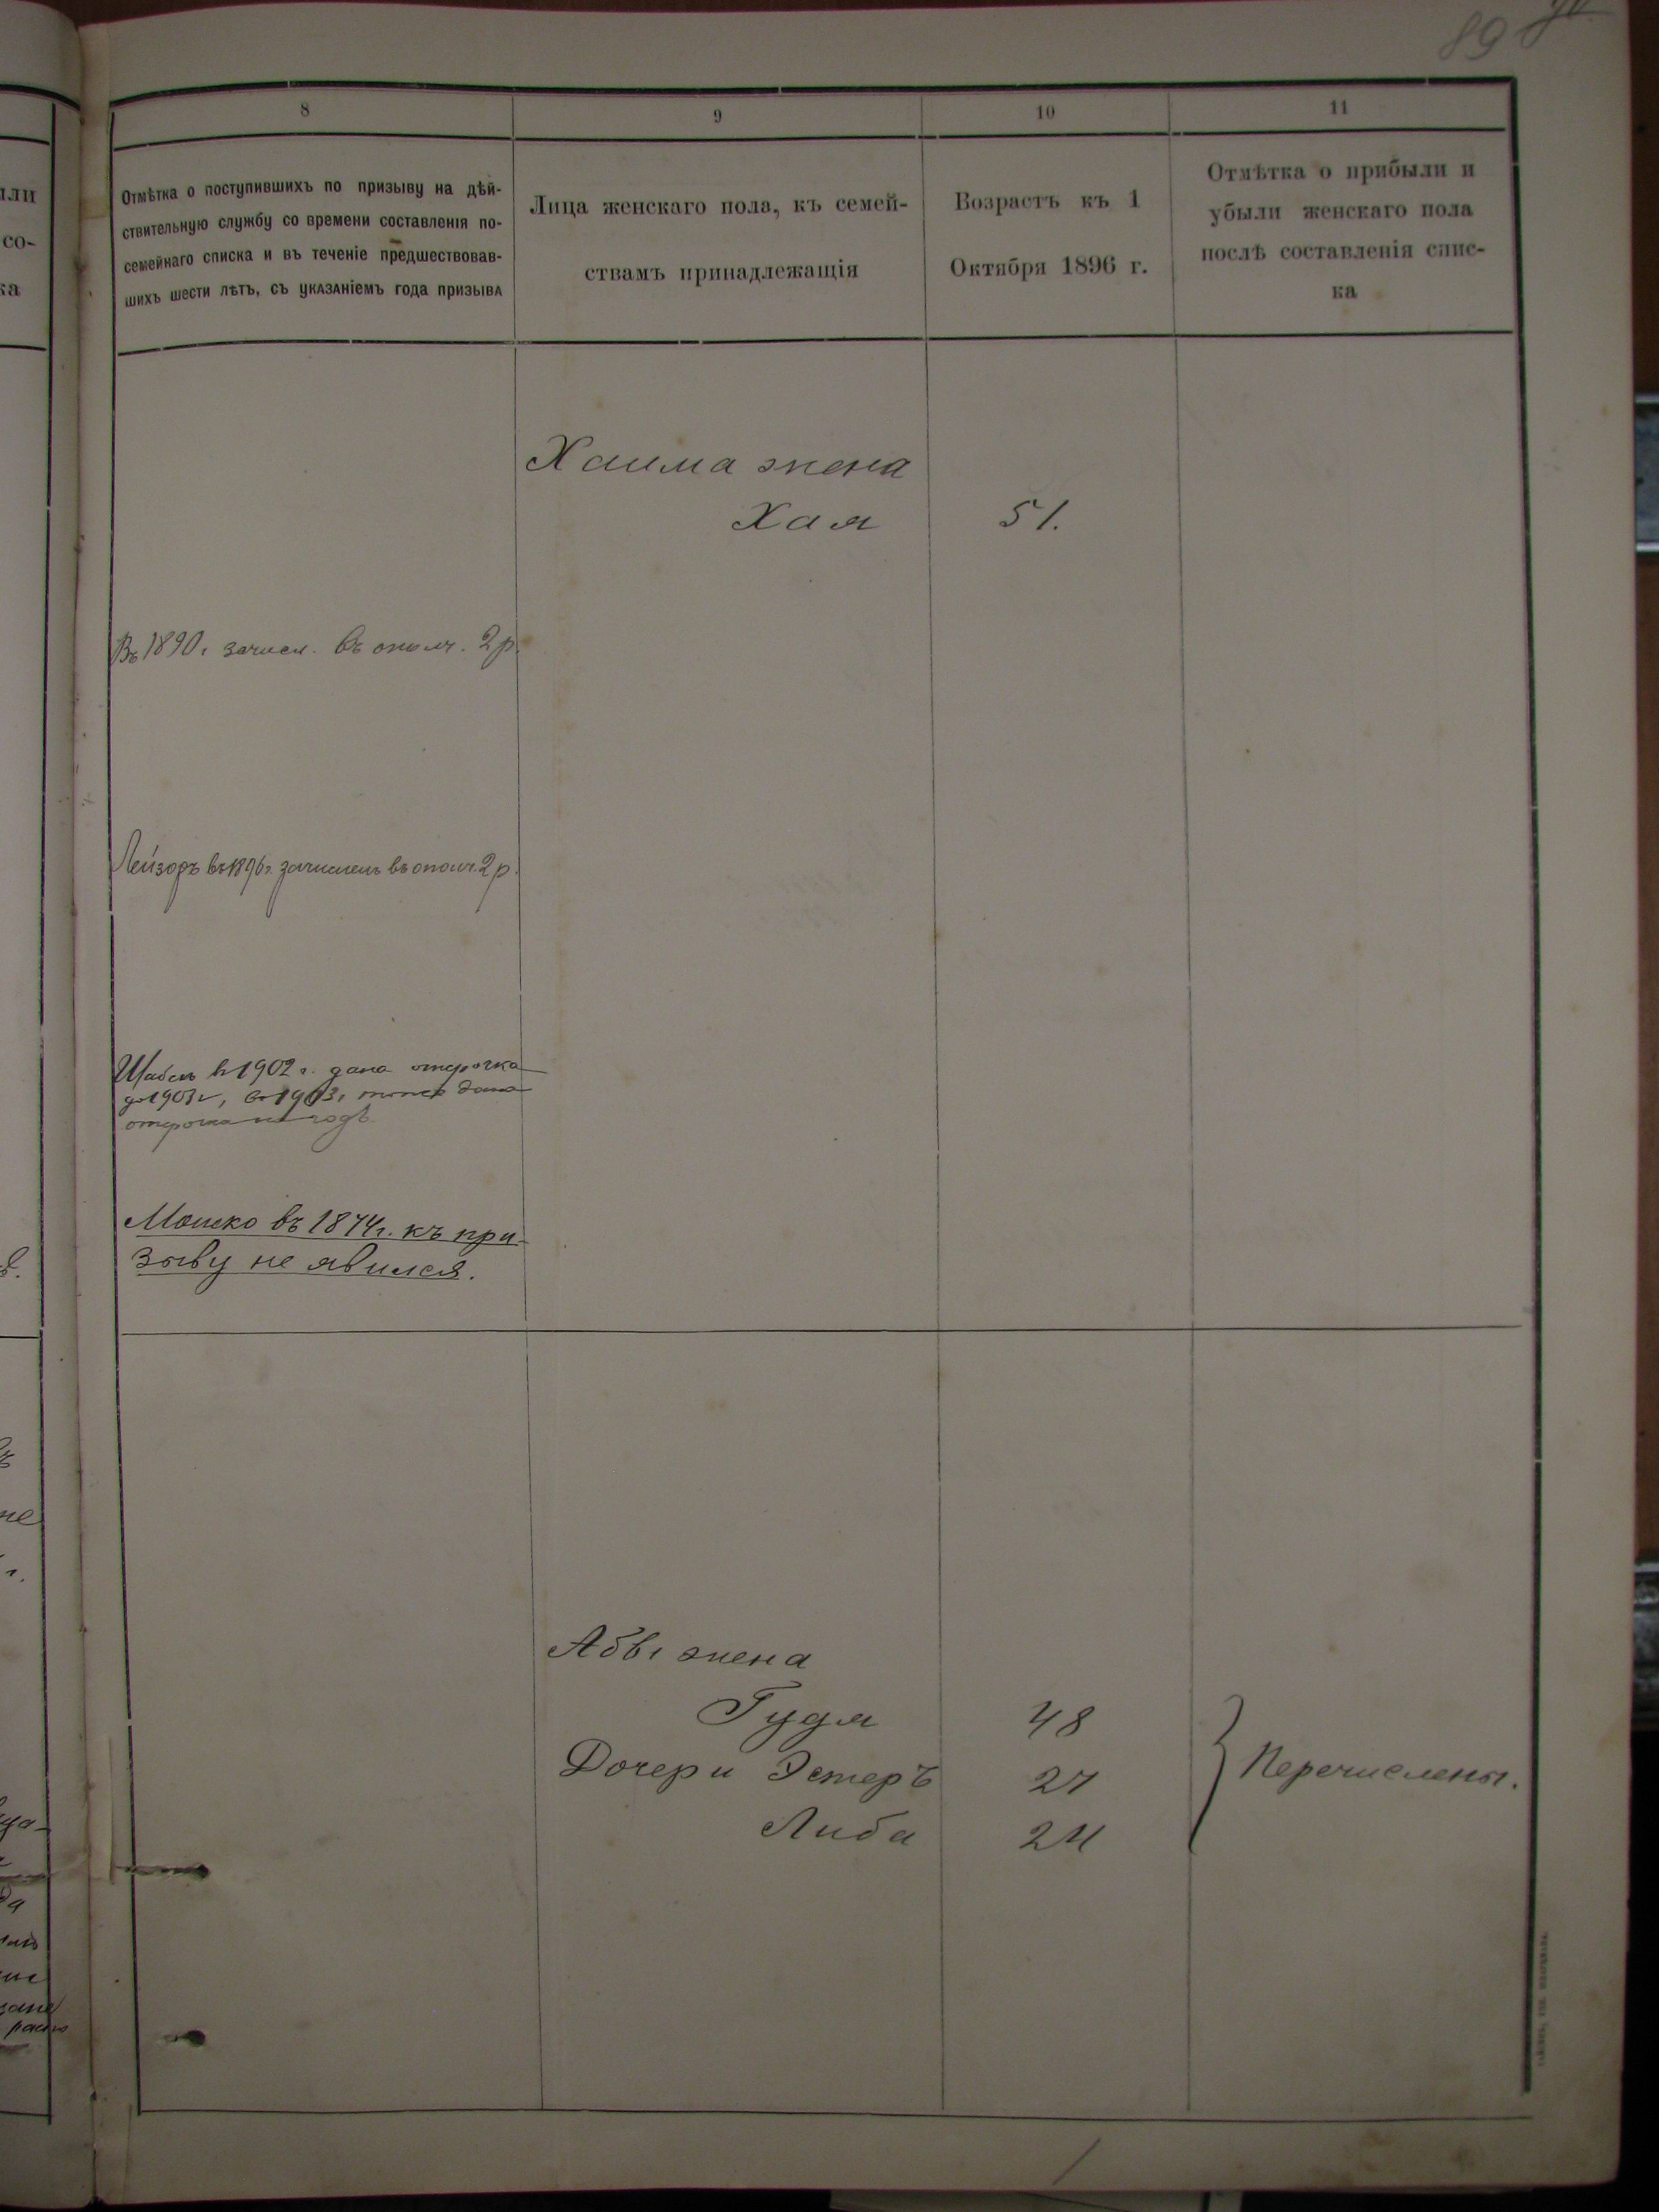 89
8
9
10
11
Отмѣтка о поступившихъ по призыву на дѣй-
ствительную службу со времени составленія по-
семейнаго списка и въ теченіе предшествовав-
шихъ шести лѣтъ, съ указаніемъ года призыва
Лица женскаго пола, къ семей-
ствамъ принадлежащія
Возрастъ къ 1
Октября 1896 г.
Отмѣтка о прибыли и
убыли женскаго пола
послѣ составленія спис-
ка
Хаима жена
Хая 51.
Въ 1890 г зачисл. въ ополч. 2 р.
Лейзоръ въ 1896 г. зачисленъ въ ополч. 2 р.
въ 1902 г. дана отсрочка
до 1903 г, въ 1903 г дана
отсрочка годъ
Мошко въ 1874 г. къ при-
зыву не явился.
Абы жена
Гудя 48
Дочери Эстеръ 27
Либа 24
Перечислены.